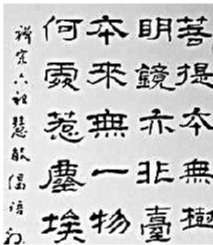 菩提本無樹
明鏡亦非臺
本來無一物
何處惹塵埃
禪宗六祖慧能偈語